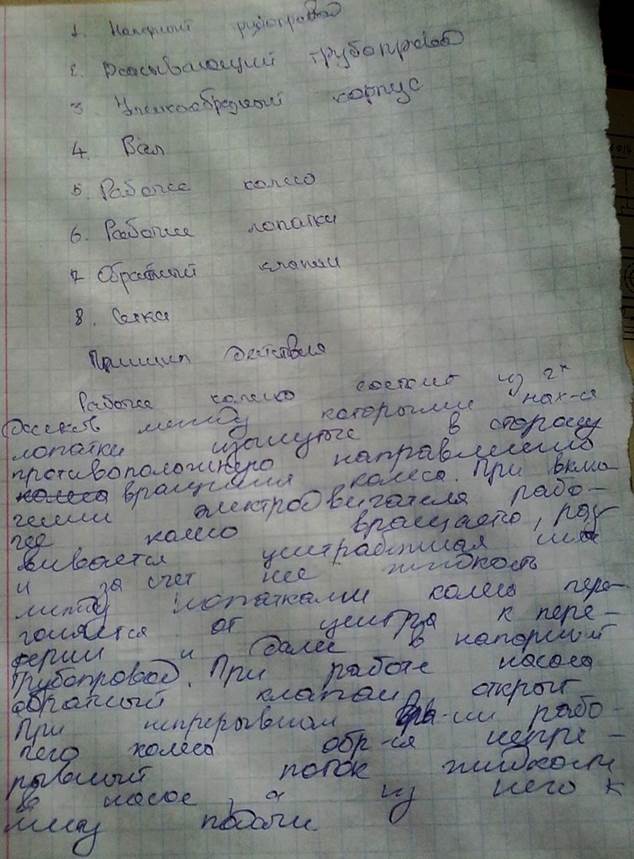 1. Напорный трубопровод
2. Всасывающий трубопровод
3. Улиткообразный корпус
4. Вал
5. Рабочее колесо
6. Рабочие лопатки
7 Обратный клапан
8. Сетка
Принцип действия
Рабочее колесо состоит из 2х
дисков между которыми нах-ся
лопатки изогнутые в сторону
противоположную направлению
колеса вращения колеса. При вклю
чении электродвигателя рабо-
чее колесо вращается, раз
вивается центробежная сила
и за счет нее жидкость
между лопатками колеса пере-
гоняется от центра к пере-
ферии и далее в напорный
трубопровод. При работе насоса
обратный клапан открыт
При непрерывном вра-ии рабо-
чего колеса обр-ся непре-
рывный поток жидкости
в насос, а из него к
месту подачи